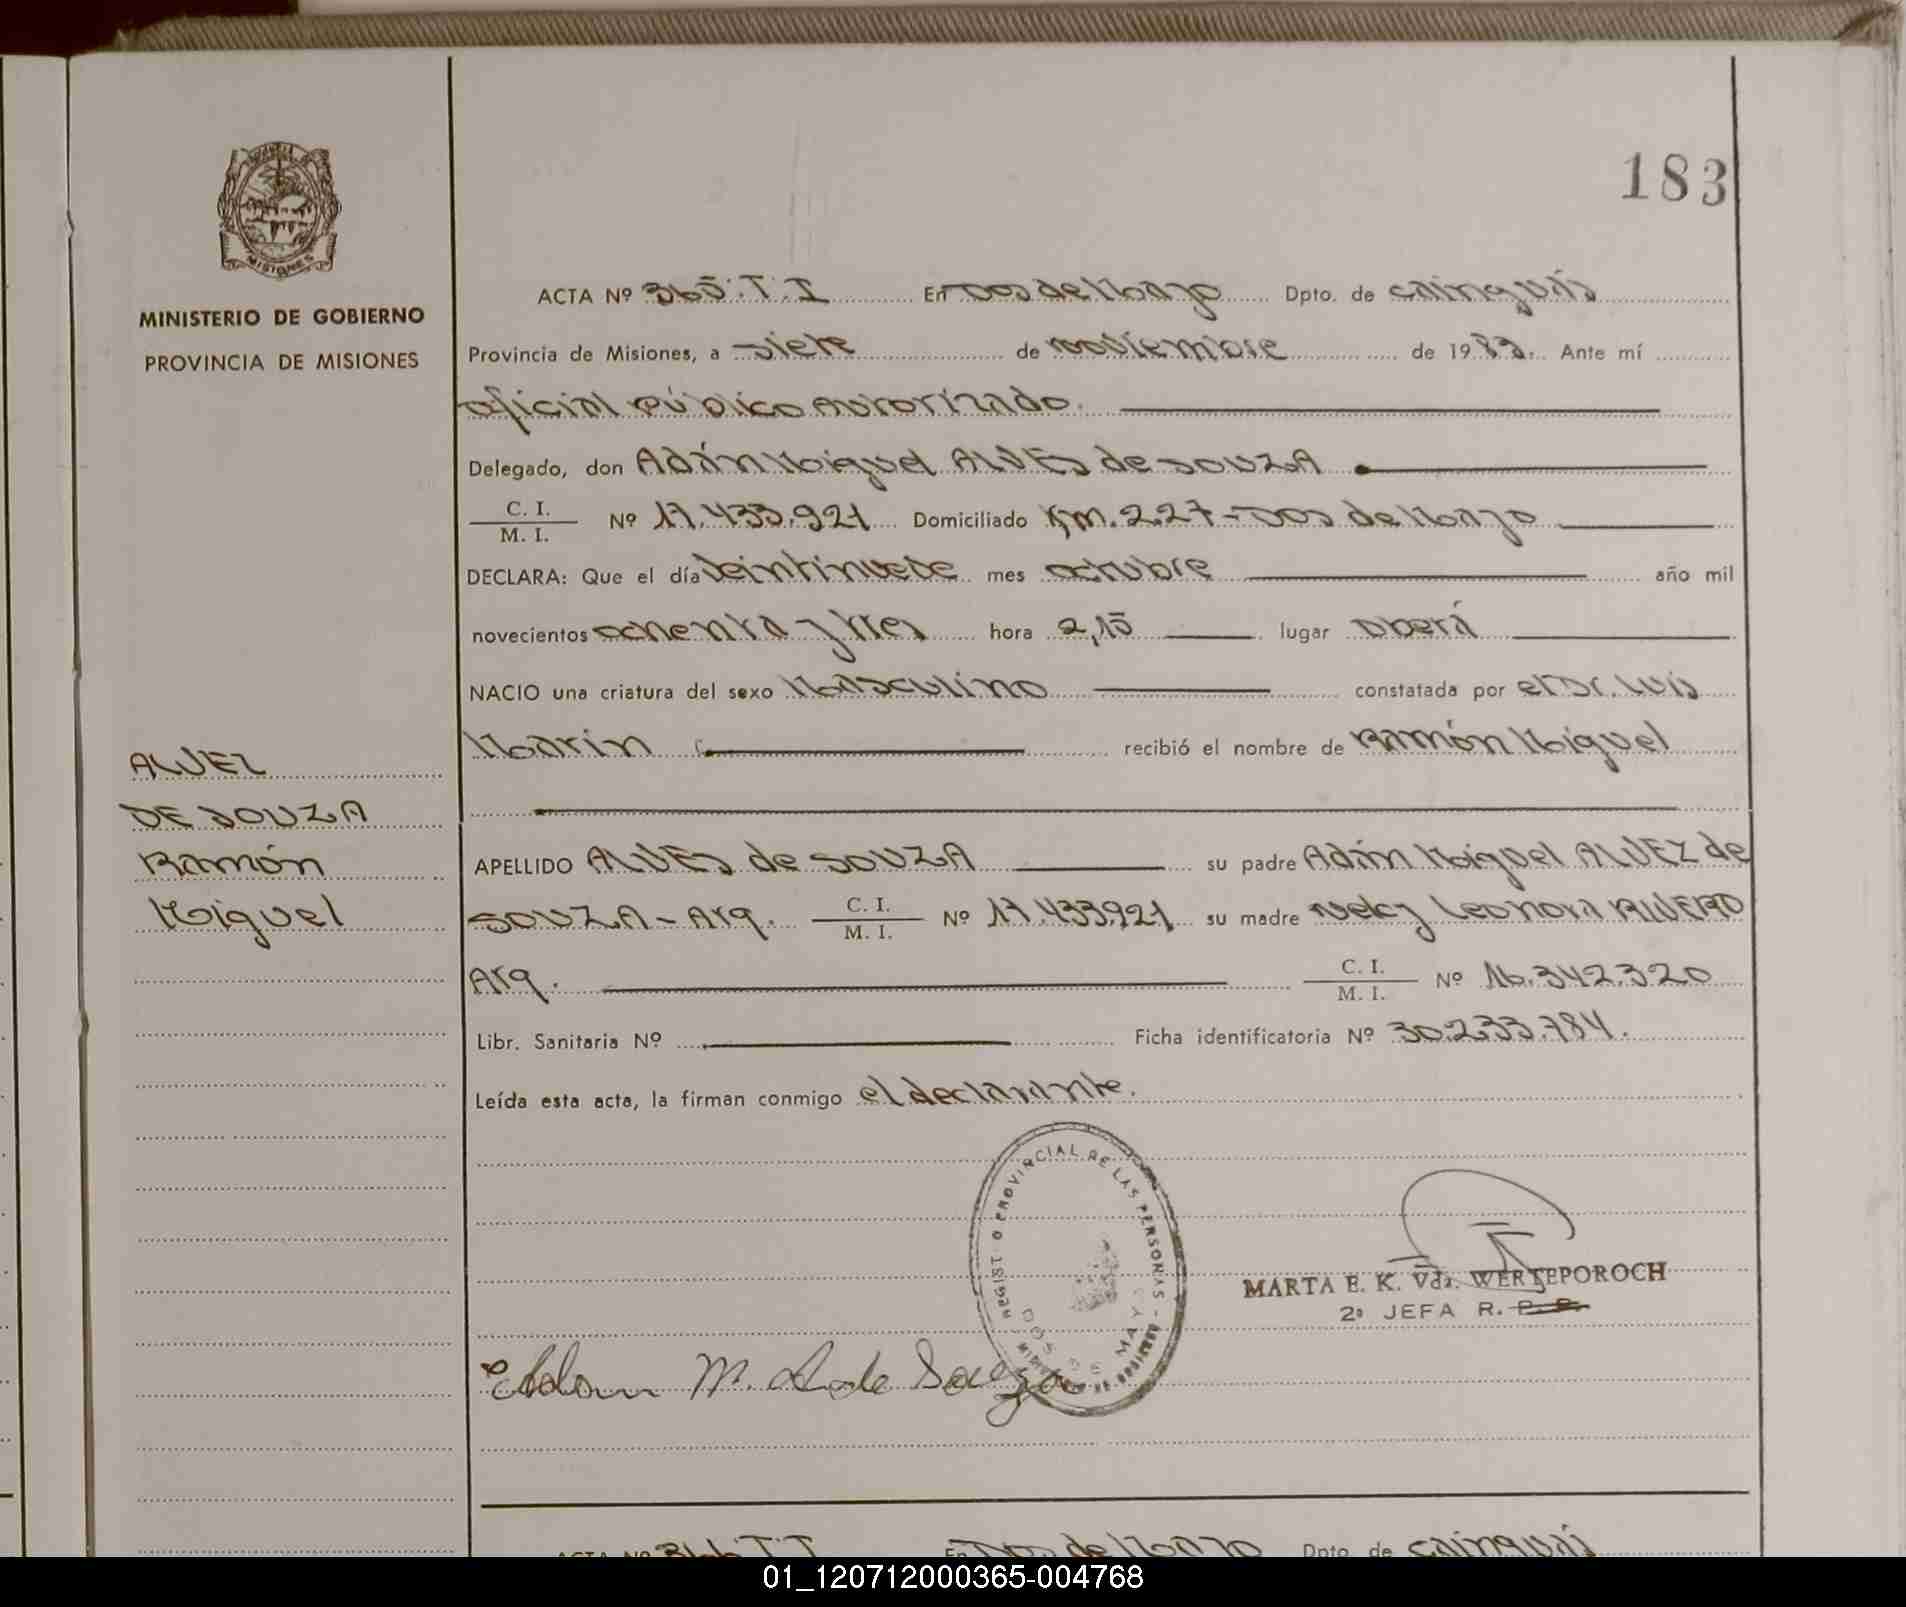 183
MINISTERIO DE GOBIERNO
PROVINCIA DE MISIONES
MISIONES
ALVEZ
DE SOUZA
Ramón
Miguel
ACTA Nº 365.T.I En Dos de Mayo Dpto. de Cainguás
Provincia de Misiones, a siete de noviembre de 1983. Ante mí
oficial público autorizado.
Delegado, don Adán Miguel ALVES de SOUZA
C. I.
M. I. Nº 17.433.921 Domiciliado Km. 227 - Dos de Mayo
DECLARA: Que el día veintinueve mes octubre año mil
novecientos ochenta y tres hora 2,15 lugar Oberá
NACIO una criatura del sexo Masculino constatada por el Dr. Luis
recibió el nombre de Ramón Miguel
APELLIDO ALVES de SOUZA su padre Adán Miguel ALVEZ de
SOUZA - Arg. C. I.
M. I. Nº 17.433.921 su madre Nelcy Leonora
Arg. C. I.
M. I. Nº 16.342.320
Libr. Sanitaria Nº Ficha identificatoria Nº 30.233.784.
Leída esta acta, la firman conmigo el declarante.
REGISTRO PROVINCIAL DE LAS PERSONAS
DOS DE MAYO
MARTA E. K. Vda. WERTEPOROCH
2ª JEFA R. P. P.
Adan M. A de Souza
ACTA Nº 366 T.I En Dos de Mayo Dpto. de Cainguás
01_120712000365-004768